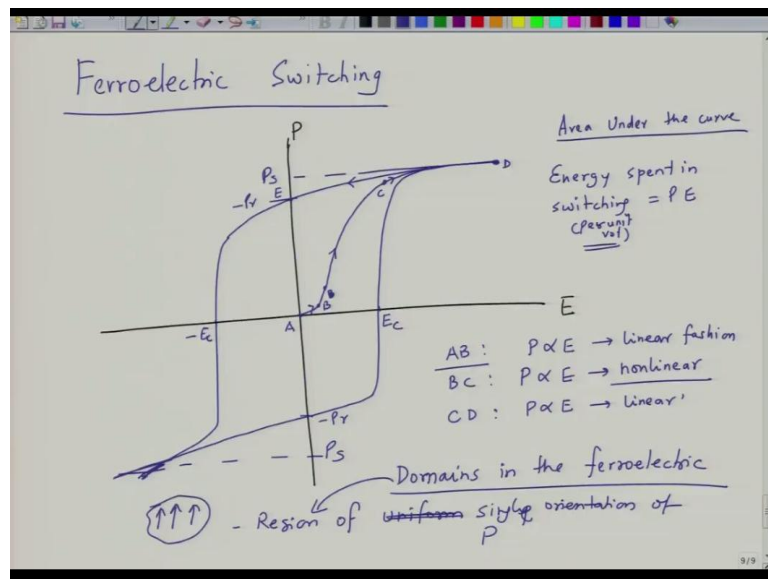 Ferroelectric Switching
P
Area Under the curve
Ps
D
C
Energy spent in
switching = PE
(per unit
vol)
-Pr
E
B
B
A
-Ec
Ec
E
AB : P∝E → linear fashion
BC : P∝E → nonlinear
CD : P∝E → linear'
-Pr
-Ps
Domains in the ferroelectric
↑↑↑ - Region of uniform single orientation of
P
9/9